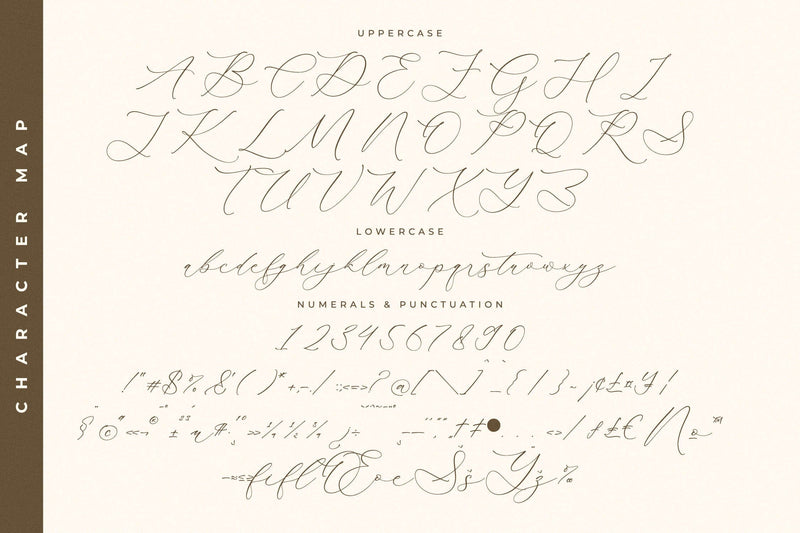 CHARACTER MAP
UPPERCASE
A B C D E F G H I
J K L M N O P Q R S
T U V W X Y Z
LOWERCASE
abcdefghijklmnopqrstuvwxyz
NUMERALS & PUNCTUATION
1 2 3 4 5 6 7 8 9 0
! " # $ % & ' ( ) * + , - . / : ; < = > ? @ [ \ ] ^ _ { | } ~ ¡ ¢ £ ¤ ¥ ¦
§ © ª « ¬ ® ¯ ° ± ² ³ µ ¶ ¹ º » ¼ ½ ¾ ¿ ÷ † ‡ • . . . < > / ƒ £ € № ™
fi fl Œ œ Š š Ÿ ž ‰